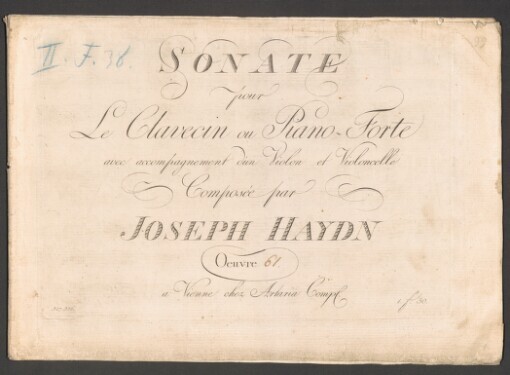 II. F. 38.
SONATE
pour
Le Clavecin ou Piano-Forte
avec accompagnement d'un Violon et Violoncelle
Composée par
JOSEPH HAYDN
Oeuvre 61.
a Vienne chez Artaria Comp.